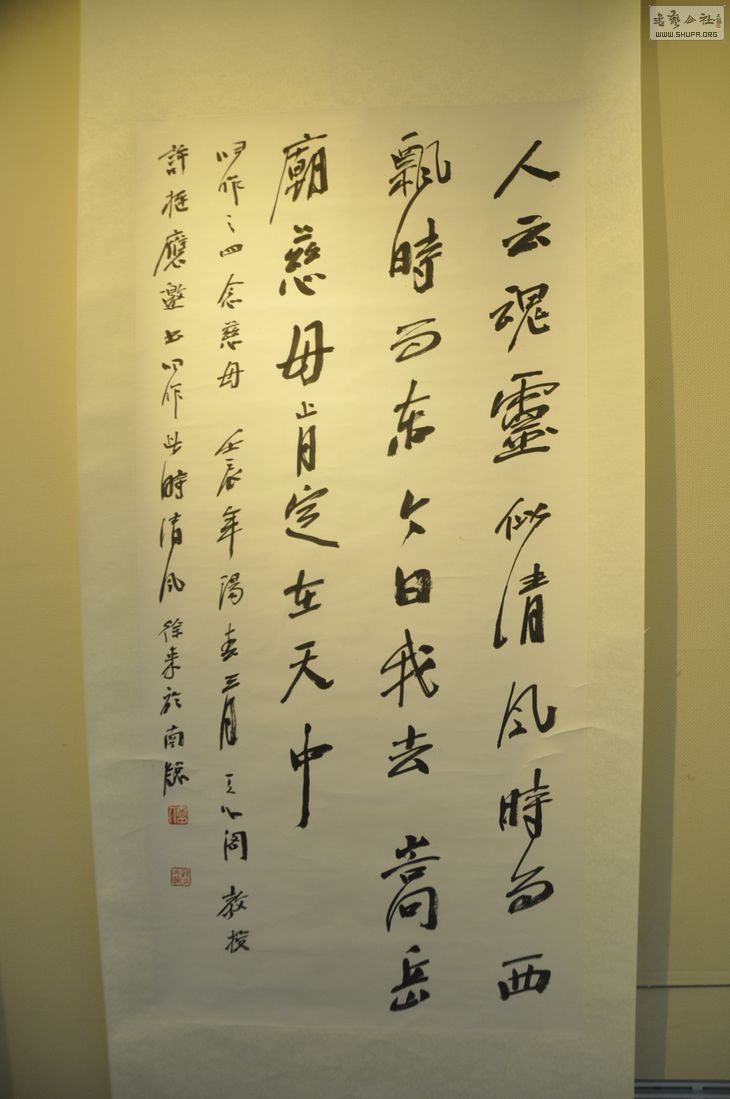 人云魂靈似清風時而西
飄時而東今日我去嵩岳
廟慈母肯定在天中
旧作之四念慈母 壬辰年陽春三月 心阁教授
許挺應邀书旧作此時清风徐来於南牖
書藝公社
WWW.SHUFA.ORG